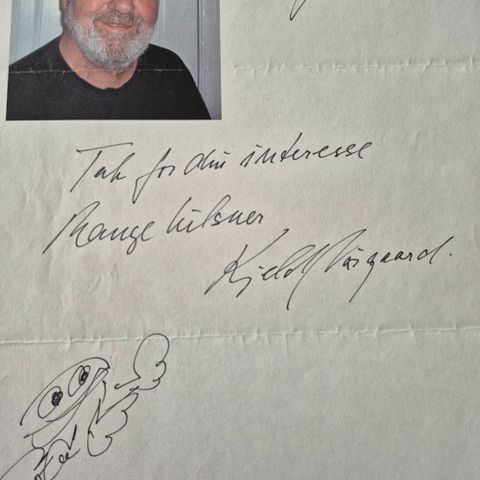 Tak for din interesse
Mange hilsner
Kjeld Nørgaard.